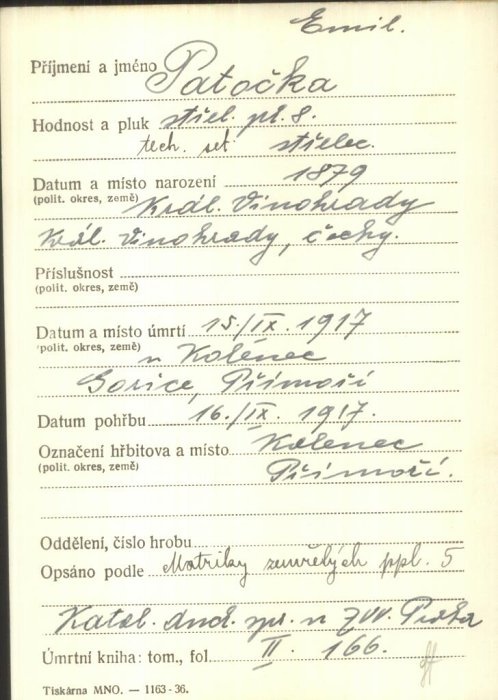 Emil.
Příjmení a jméno Patočka
Hodnost a pluk střel. pl. 8.
tech. set střelec.
Datum a místo narození 1879
(polit. okres, země) Král. Vinohrady
Král. Vinohrady, Čechy.
Příslušnost
(polit. okres, země)
Datum a místo úmrtí 15./IX. 1917
(polit. okres, země) u Kolénec
Gorice, Přímoří
Datum pohřbu 16./IX. 1917.
Označení hřbitova a místo Kolenec
(polit. okres, země) Přímoří.
Oddělení, číslo hrobu
Opsáno podle Matriky zemřelých ppl. 5
Katol. duch. spr. u ZVV. Praha
Úmrtní kniha: tom., fol. II. 166.
Tiskárna MNO. — 1163-36.